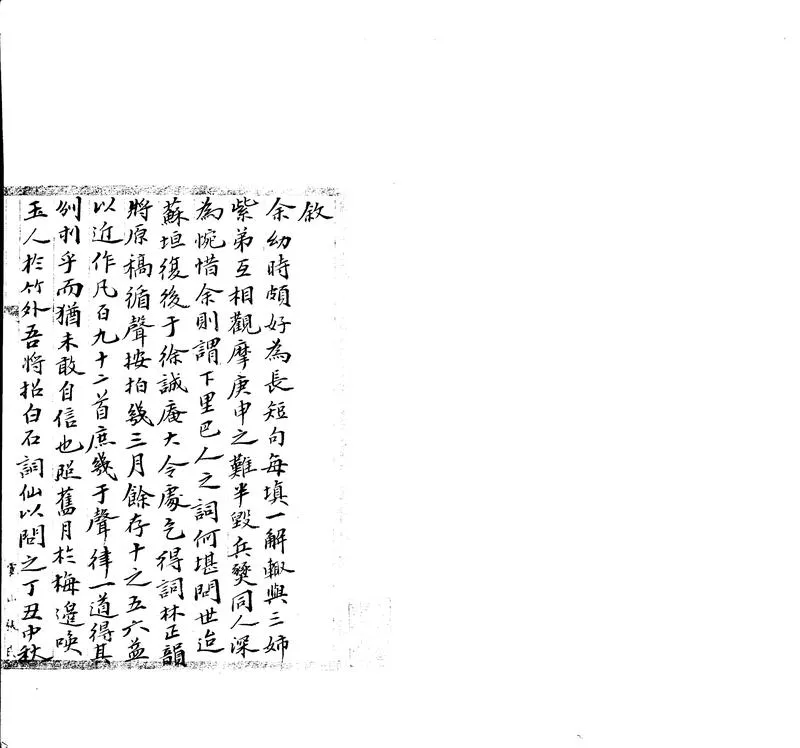 敘
余幼時頗好為長短句每填一解輙與三姉
紫弟互相觀摩庚申之難半毀兵燹同人深
為惋惜余則謂下里巴人之詞何堪問世迨
蘇垣復後于徐誠庵大令處乞得詞林正韻
將原稿循聲按拍幾三月餘存十之五六益
以近作凡百九十二首庶幾于聲律一道得其
刌刌乎而猶未敢自信也照舊月於梅邊喚
玉人於竹外吾將招白石詞仙以問之丁丑中秋